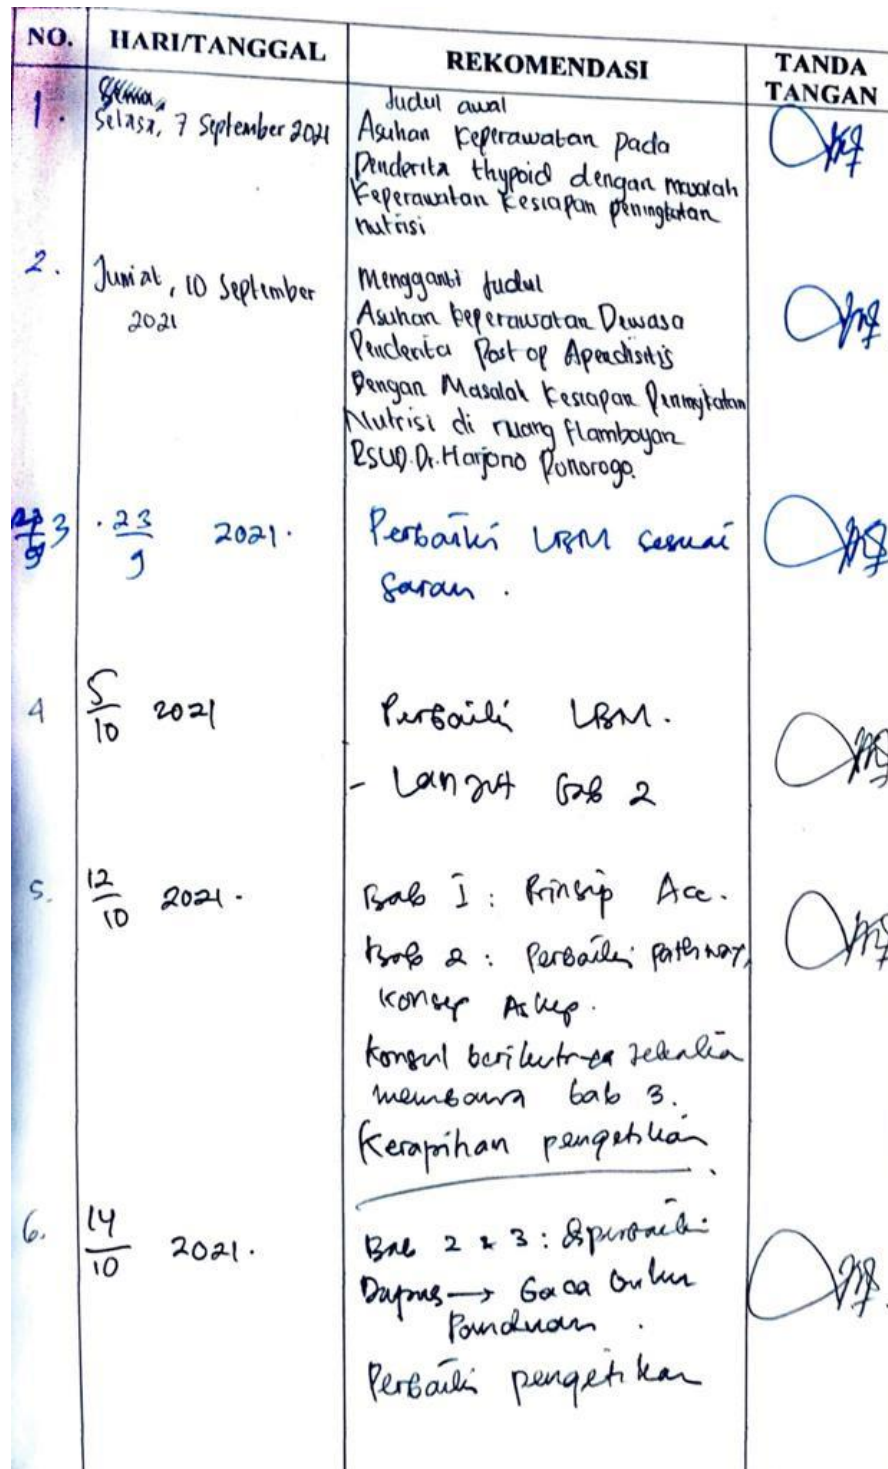 NO. HARI/TANGGAL REKOMENDASI TANDA TANGAN
1. Selasa, 7 September 2021
Judul awal
Asuhan Keperawatan pada
Penderita thypoid dengan masalah
Keperawatan Kesiapan peningkatan
nutrisi
2. Jum'at, 10 September
2021
Mengganti Judul
Asuhan keperawatan Dewasa
Penderita Post op Apendisitis
Dengan Masalah Kesiapan Peningkatan
Nutrisi di ruang flamboyan
RSUD.Dr.Harjono Ponorogo.
3 23/9 2021.
Perbaiki LBM sesuai
saran.
4 5/10 2021
Perbaiki LBM.
- Lanjut bab 2
5. 12/10 2021.
Bab I : Prinsip Acc.
Bab 2 : Perbaiki pathway,
Konsep Askep.
Konsul berikutnya sekalian
membawa bab 3.
Kerapihan pengetikan
6. 14/10 2021.
Bab 2 & 3 : diperbaiki
Dapus → baca buku
Panduan.
Perbaiki pengetikan